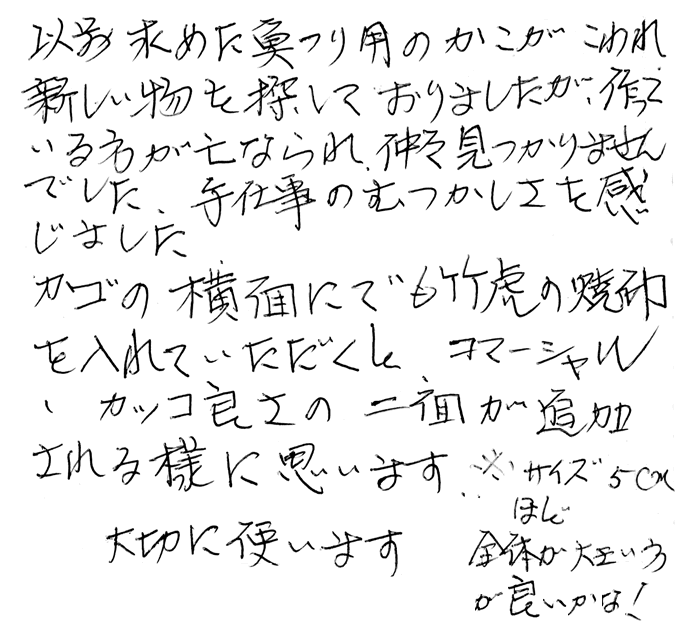 以前求めた魚つり用のかごがこわれ
新しい物を探しておりましたが、作って
いる方が亡なられ、仲々見つかりません
でした、手仕事のむつかしさを感
じました
カゴの横面にでも竹虎の焼印
を入れていただくと コマーシャル
、カッコ良さの二面が追加
される様に思います
大切に使います
※サイズ5cm
ほど
全体が大きい方
が良いかな!